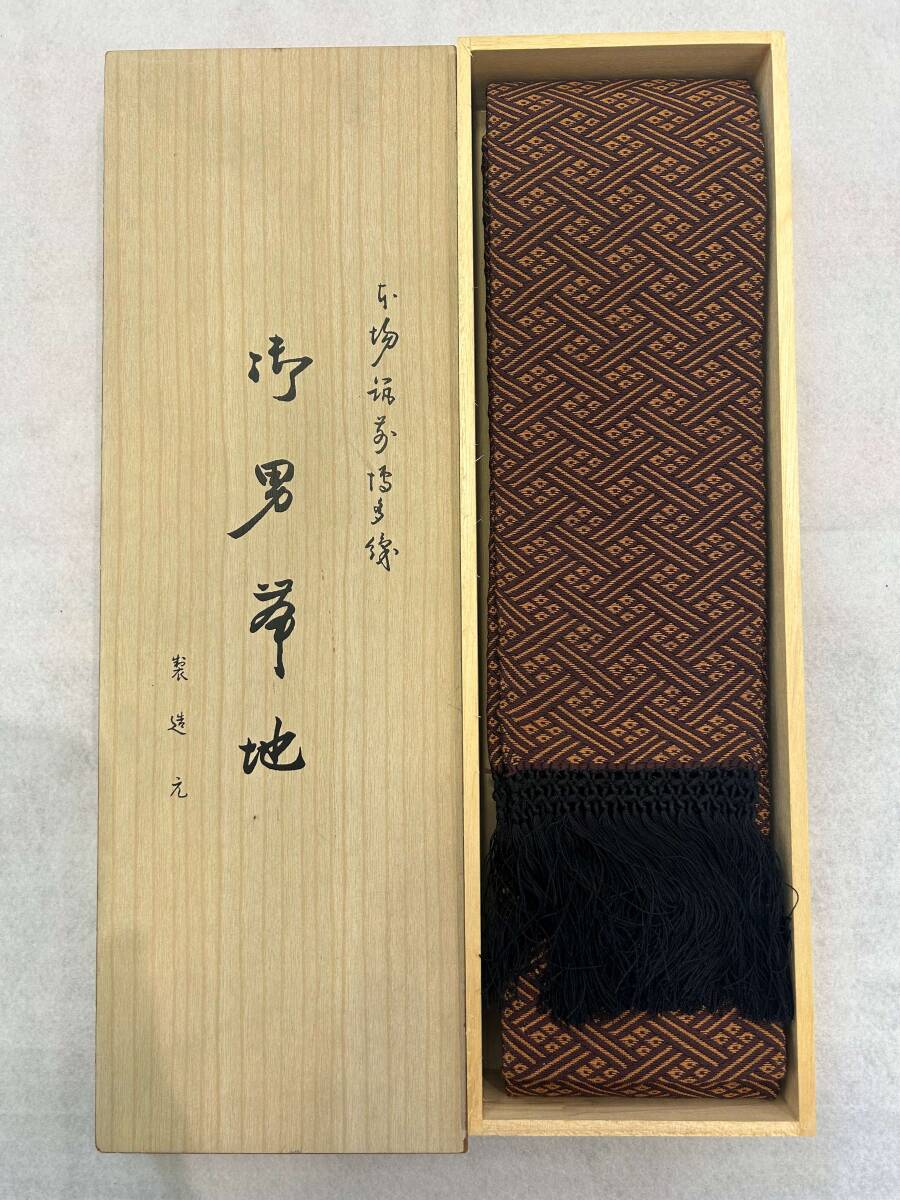 本場筑前博多織
御男帯地
製造元